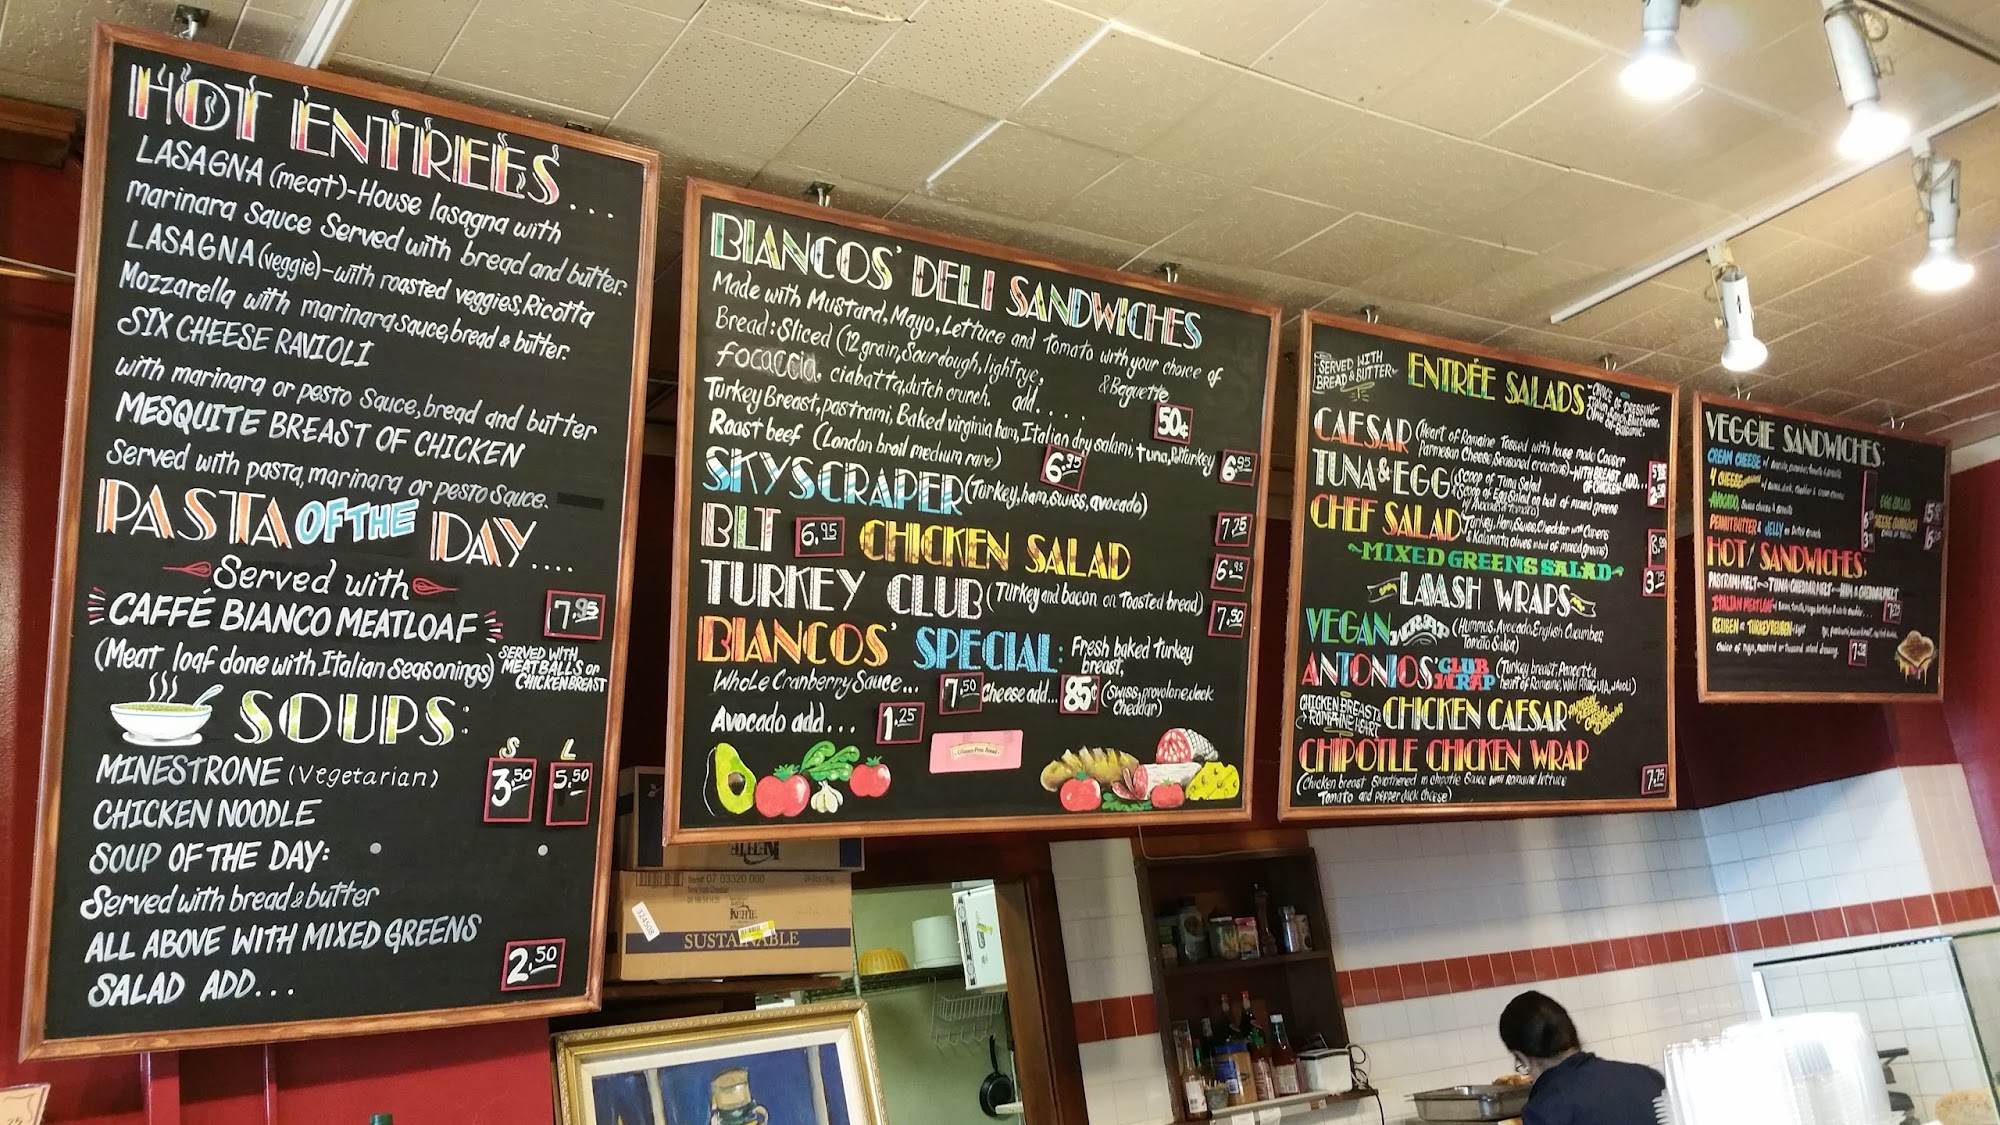 HOT ENTREES...
LASAGNA (meat)-House lasagna with
marinara sauce served with bread and butter.
LASAGNA (veggie)-with roasted veggies, Ricotta
Mozzarella with marinara sauce, bread & butter.
SIX CHEESE RAVIOLI
with marinara or pesto sauce, bread and butter
MESQUITE BREAST OF CHICKEN
served with pasta, marinara or pesto sauce.
PASTA OF THE DAY....
Served with
CAFFÉ BIANCO MEATLOAF 7.95
(Meat loaf done with Italian seasonings)
SERVED WITH
MEATBALLS or
CHICKEN BREAST
SOUPS:
S L
MINESTRONE (Vegetarian) 3.50 5.50
CHICKEN NOODLE
SOUP OF THE DAY:
Served with bread & butter
ALL ABOVE WITH MIXED GREENS
SALAD ADD... 2.50
BIANCOS' DELI SANDWICHES
Made with Mustard, Mayo, Lettuce and Tomato with your choice of
Bread: Sliced (12 grain, Sourdough, light rye,
& Baguette
focaccia, ciabatta, dutch crunch. add..... 50¢
Turkey Breast, pastrami, Baked virginia ham, Italian dry salami, tuna, Turkey 6.95
Roast beef (London broil medium rare) 6.95
SKYSCRAPER (Turkey, ham, swiss, avocado) 7.25
BLT 6.95 CHICKEN SALAD 6.95
TURKEY CLUB (Turkey and bacon on Toasted bread) 7.50
BIANCOS' SPECIAL: Fresh baked turkey
breast,
Whole Cranberry Sauce... 7.50 Cheese add... 85¢ (Swiss, provolone, Jack
Cheddar)
Avocado add... 1.25
Gluten-Free Bread
SERVED WITH
BREAD & BUTTER
ENTRÉE SALADS
CHOICE OF DRESSING
CAESAR (Heart of Romaine Tossed with house made Caesar
Parmesan Cheese, Seasoned croutons) -WITH BREAST ADD...
OF CHICKEN
TUNA & EGG (Scoop of Tuna Salad
& Scoop of Egg Salad on bed of mixed greens
w/ Avocado & Tomato)
CHEF SALAD (Turkey, Ham, Swiss, Cheddar with Capers
& Kalamata olives on bed of mixed greens)
MIXED GREENS SALAD 3.75
LAVASH WRAPS
VEGAN WRAP (Hummus, Avocado, English Cucumber,
Tomato Salsa)
ANTONIOS' CLUB WRAP (Turkey breast, Pancetta
heart of Romaine,
CHICKEN BREAST &
ROMAINE HEART
CHICKEN CAESAR
CHIPOTLE CHICKEN WRAP 7.75
(Chicken breast smothered in chipotle sauce with romaine lettuce
Tomato and pepper jack cheese)
VEGGIE SANDWICHES:
CREAM CHEESE
4 CHEESE
AVOCADO, Swiss cheese &
PEANUT BUTTER & JELLY on Dutch crunch
EGG SALAD
HOT/SANDWICHES:
PASTRAMI MELT TUNA CHEDDAR MELT HAM & CHEDDAR MELT
ITALIAN MEATLOAF
REUBEN or TURKEY REUBEN
07 03320 000
New York Cheddar
KETTLE
324508
SUSTAINABLE